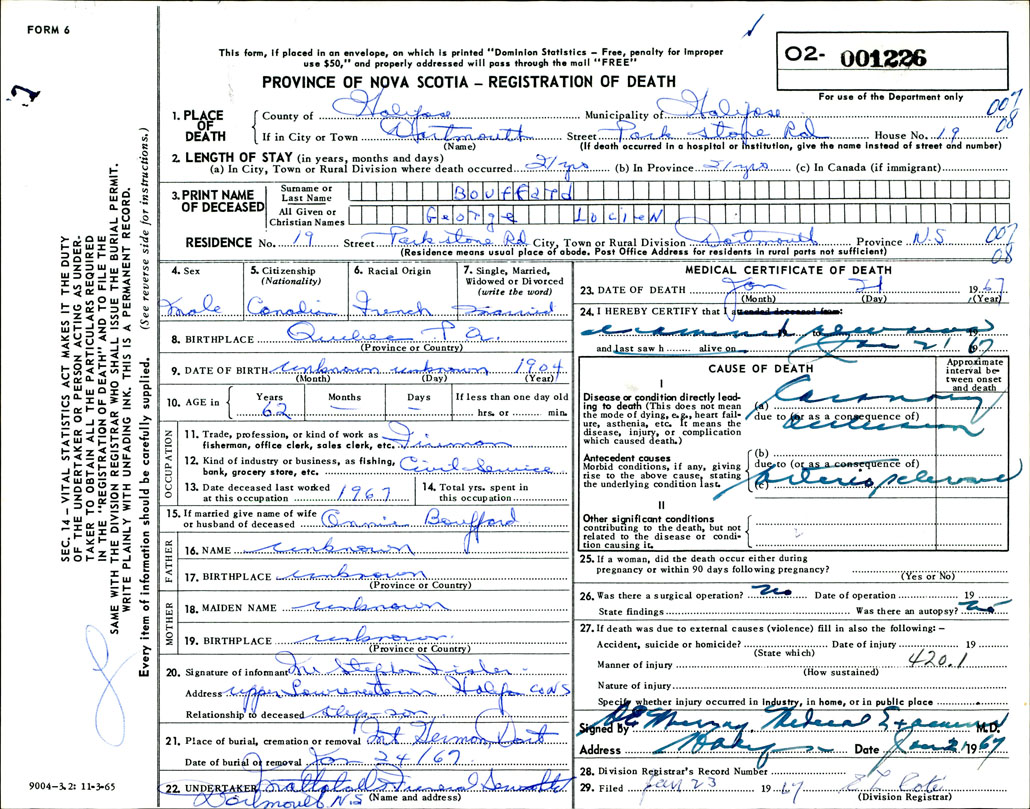 FORM 6
This form, if placed in an envelope, on which is printed "Dominion Statistics – Free, penalty for improper
use $50," and properly addressed will pass through the mail "FREE"
PROVINCE OF NOVA SCOTIA – REGISTRATION OF DEATH
O2- 001226
For use of the Department only
007
08
1. PLACE OF DEATH
County of Halifax Municipality of Halifax
If in City or Town Dartmouth Street Park stone Rd House No. 19
(Name) (If death occurred in a hospital or institution, give the name instead of street and number)
2. LENGTH OF STAY (in years, months and days)
(a) In City, Town or Rural Division where death occurred 21 yrs (b) In Province 21 yrs (c) In Canada (if immigrant)
3. PRINT NAME OF DECEASED
Surname or Last Name Bouffard
All Given or Christian Names George Locien
RESIDENCE No. 19 Street Park stone Rd City, Town or Rural Division Dartmouth Province N.S 007
08
(Residence means usual place of abode. Post Office Address for residents in rural parts not sufficient)
SEC. 14 – VITAL STATISTICS ACT MAKES IT THE DUTY
OF THE UNDERTAKER OR PERSON ACTING AS UNDER-
TAKER TO OBTAIN ALL THE PARTICULARS REQUIRED
IN THE "REGISTRATION OF DEATH" AND TO FILE THE
SAME WITH THE DIVISION REGISTRAR WHO SHALL ISSUE THE BURIAL PERMIT.
WRITE PLAINLY WITH UNFADING INK. THIS IS A PERMANENT RECORD.
Every item of information should be carefully supplied. (See reverse side for instructions.)
4. Sex
Male
5. Citizenship
(Nationality)
Canadian
6. Racial Origin
French
7. Single, Married,
Widowed or Divorced
(write the word)
Married
8. BIRTHPLACE Quebec P.Q.
(Province or Country)
9. DATE OF BIRTH unknown unknown 1904
(Month) (Day) (Year)
10. AGE in Years Months Days If less than one day old
62 — — hrs. or min.
OCCUPATION
11. Trade, profession, or kind of work as
fisherman, office clerk, sales clerk, etc. Fireman
12. Kind of industry or business, as fishing,
bank, grocery store, etc. Civil Service
13. Date deceased last worked
at this occupation 1967
14. Total yrs. spent in
this occupation
15. If married give name of wife
or husband of deceased Annie Bouffard
FATHER
16. NAME unknown
17. BIRTHPLACE unknown
(Province or Country)
MOTHER
18. MAIDEN NAME unknown
19. BIRTHPLACE unknown
(Province or Country)
20. Signature of informant Mr Stephen
Address Upper Lawrencetown Halifax Co NS
Relationship to deceased step-son
21. Place of burial, cremation or removal Mort Dart
Date of burial or removal Jan 24/67
22. UNDERTAKER Funeral
Dartmouth N.S (Name and address)
9004-3.2: 11-3-65
MEDICAL CERTIFICATE OF DEATH
23. DATE OF DEATH Jan 21 1967
(Month) (Day) (Year)
24. I HEREBY CERTIFY that I attended deceased from:
examined deceased 19
and last saw h alive on Jan 21 1967
CAUSE OF DEATH
Approximate
interval be-
tween onset
and death
I
Disease or condition directly lead-
ing to death (This does not mean
the mode of dying, e.g., heart failure,
asthenia, etc. It means the
disease, injury, or complication
which caused death.)
(a) Coronary
due to (or as a consequence of)
occlusion
Antecedent causes
Morbid conditions, if any, giving
rise to the above cause, stating
the underlying condition last.
(b)
due to (or as a consequence of)
(c) Arterio sclerosis
II
Other significant conditions
contributing to the death, but not
related to the disease or condi-
tion causing it.
25. If a woman, did the death occur either during
pregnancy or within 90 days following pregnancy?
(Yes or No)
26. Was there a surgical operation? No Date of operation 19
State findings Was there an autopsy? No
27. If death was due to external causes (violence) fill in also the following: –
Accident, suicide or homicide? Date of injury 19
(State which)
Manner of injury 420.1
(How sustained)
Nature of injury
Specify whether injury occurred in industry, in home, or in public place
Signed by Murray, Medical Examiner M.D.
Address Halifax Date Jan 21 1967
28. Division Registrar's Record Number
29. Filed Jan 23 1967 Cote
(Division Registrar)